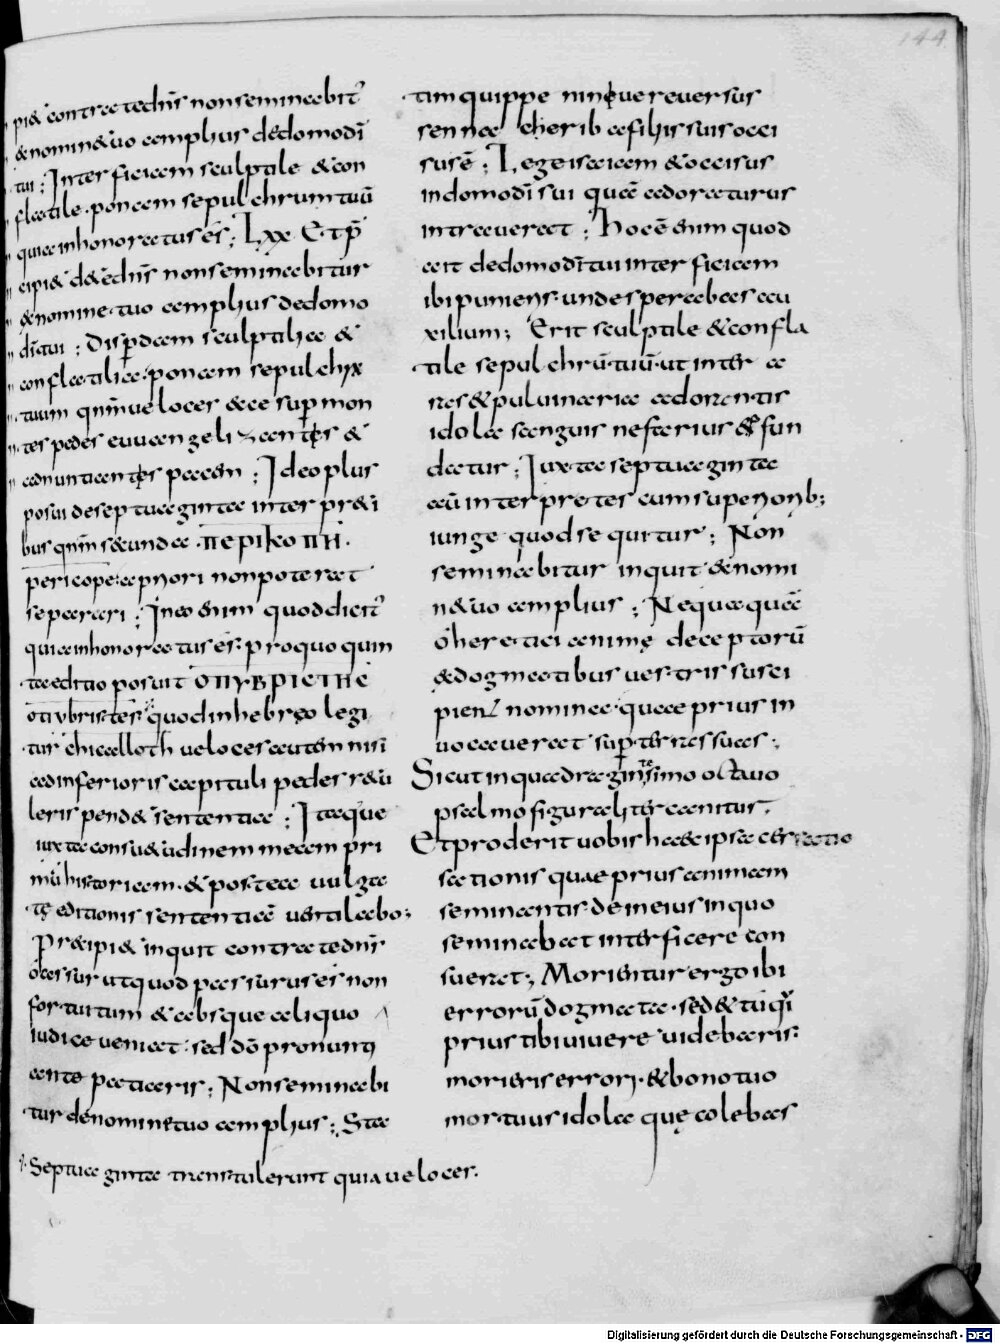 144
pi& contra tedn̄s nonseminabit᷑
&nomin&uo amplius dedomodī
tui ; Interficiam sculptile &con
flatile · ponam sepulchrum tuū
quia inhonoratus es ; Lxx Et p̄
cipi& d&edn̄s nonseminabitur
&nomine tuo amplius dedomo
dītui ; Disp̱dam sculptilia &
conflatilia · ponam sepulchrū
tuum qm̄ veloces &ce sup mon
tes pedes euuangelizantis &
adnuntiantis pacem ; Ideo plus
posui deseptuaginta inter pr&i
bus qm̄ secunda · ΠΕΡΙΚΟΠΗ ·
pericope apriori nonpoterat
separari ; In eo enim quod dicit᷑
quia inhonoratus es · proquo quin
ta editio posuit ΟΤΙ ΥΒΡΙCΤΗC
otiybristes quodinhebreo legi
tur chicalloth ueloces autem nisi
adinferioris capituli pedes r&u
leris pend& sententia ; Itaque
iuxta consu&udinem meam pri
mū historicam · &postea uulga
tę editionis sententiā uentilabo ;
Praecipi& inquit contra tedn̄s
o assur utquod passurus es non
fortuitum &absque aliquo
iudice ueniat · sed dō pronunti
ante patiaris ; Nonseminabi
tur denominetuo amplius ; Sta
Septuaginta transtulerunt quia ueloces ·
tim quippe nineue reuersus
sennacherib afiliis suis occi
sus ē ; Legeisaiam &occisus
indomodī sui quā adoraturus
intrauerat ; Hoc ē enim quod
ait dedomodītui interficiam
ibi puniens · unde sperabas au
xilium ; Erit sculptile &confla
tile sepulchrū tuū · ut inter a
ras &puluinaria adorantis
idola sanguis nefarius &ffun
datur ; Iuxta septuaginta
aū interpretes cum superiorib ;
iunge quod sequitur ; Non
seminabitur inquit &nomi
n&uo amplius ; Nequaquā
o heretici animę deceptorū
&dogmatibus uestris susci
pient nomina · quae prius in
uocauerat sup̱ terras suas ;
Sicut in quadragintesimo octauo
psalmo figuraliter canitur ;
Et proderit uobis haec ipsa ces satio
sationis quae prius animam
seminantis · deineius inquo
seminabat interficere con
sueuerat ; Morientur ergo ibi
errorū dogmata · sed & tu qui
prius tibi uiuere uidebaris ·
morieris errori · &bono tuo
mortuus idola quę colebas
Digitalisierung gefördert durch die Deutsche Forschungsgemeinschaft - DFG